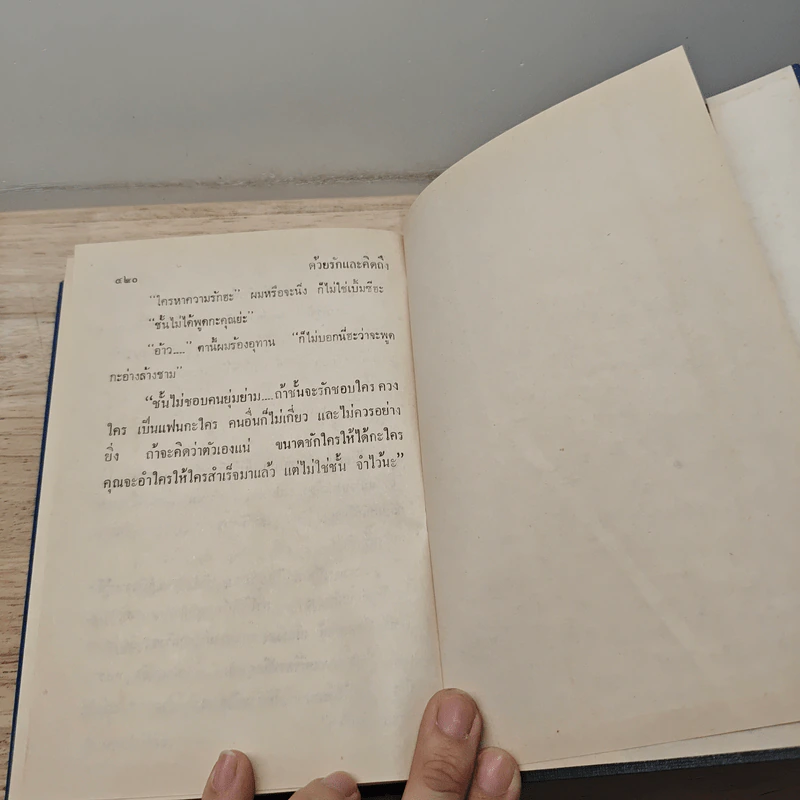 ๔๒๐
ด้วยรักและคิดถึง
“ใครหาความรักฮะ” ผมหรือจะนึ่ง ก็ไม่ใช่เบ็มซีฮะ
“ชั้นไม่ได้พูดกะคุณย่ะ”
“อ้าว.....” คานี้ผมร้องอุทาน “ก็ไม่บอกนี่ฮะว่าจะพูด
กะอ่างล้างชาม”
“ชั้นไม่ชอบคนยุ่มย่าม....ถ้าชั้นจะรักชอบใคร ควง
ใคร เป็นแฟนกะใคร คนอื่นก็ไม่เกี่ยว และไม่ควรอย่าง
ยิ่ง ถ้าจะคิดว่าตัวเองแน่ ขนาดชักใครให้ได้กะใคร
คุณจะอำใครให้ใครสำเร็จมาแล้ว แต่ไม่ใช่ชั้น จำไว้นะ”